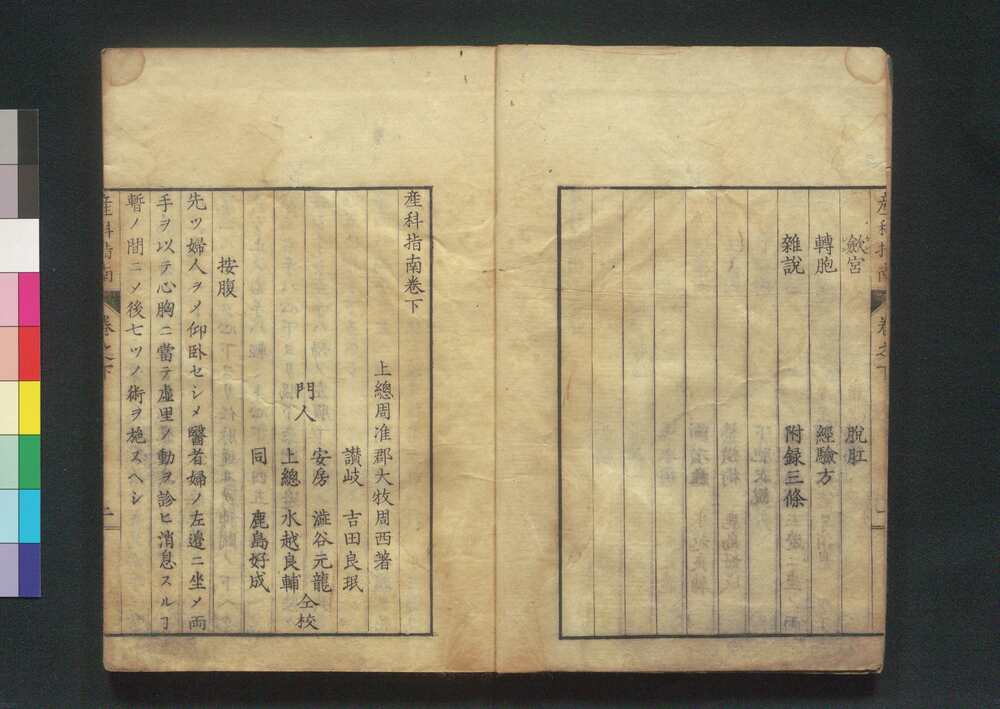 産科指南
卷之下
歛宮
脫肛
轉胞
經驗方
雜說
附録三條
産科指南卷下
上總周准郡大牧周西著
讃岐 吉田良珉
安房 澁谷元龍
門人 上總 水越良輔 仝校
同 鹿島好成
按腹
先ツ婦人ヲメ仰臥セシメ醫者婦ノ左邊ニ坐メ両
手ヲ以テ心胸ニ當テ虛里ノ動ヲ診ヒ消息スルヿ
暫ノ間ニメ後七ツノ術ヲ施スヘシ
産科指南
卷之下